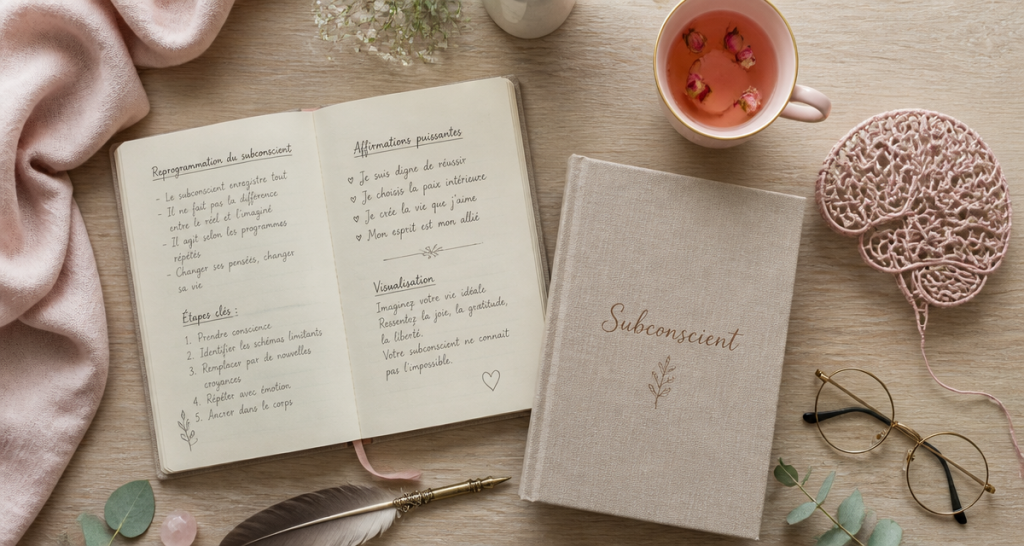 Reprogrammation du subconscient
- Le subconscient enregistre tout
- Il ne fait pas la différence
entre le réel et l'imaginé
- Il agit selon les programmes
répétés
- Changer ses pensées, changer
sa vie
Étapes clés :
1. Prendre conscience
2. Identifier les schémas limitants
3. Remplacer par de nouvelles
croyances
4. Répéter avec émotion
5. Ancrer dans le corps
Affirmations puissantes
♡ Je suis digne de réussir
♡ Je choisis la paix intérieure
♡ Je crée la vie que j'aime
♡ Mon esprit est mon allié
Visualisation
Imaginez votre vie idéale
Ressentez la joie, la gratitude,
la liberté.
Votre subconscient ne connaît
pas l'impossible.
Subconscient